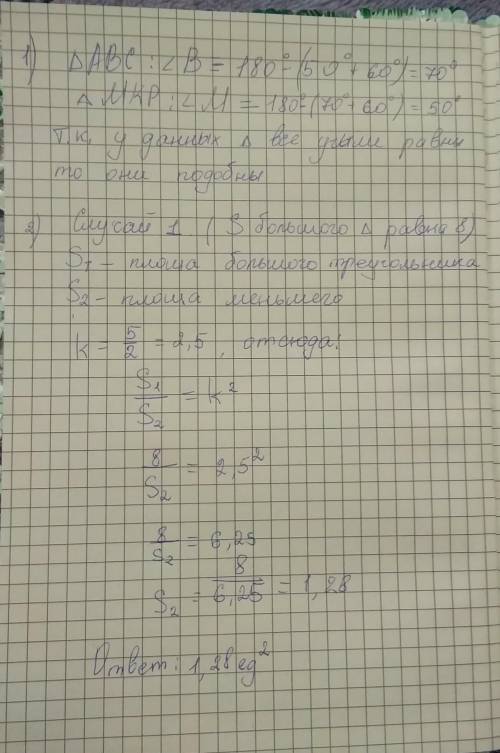 1) ΔABC : ∠B = 180° - (50° + 60°) = 70°
ΔMKP : ∠M = 180° - (70° + 60°) = 50°
Т.к. у данных Δ все углы равны
то они подобны
2) Случай 1 ( S большого Δ равна 8)
S1 - площа большого треугольника
S2 - площа меньшего
k = 5/2 = 2,5, отсюда:
S1/S2 = k²
8/S2 = 2,5²
8/S2 = 6,25
S2 = 8/6,25 = 1,28
Ответ: 1,28 ед²